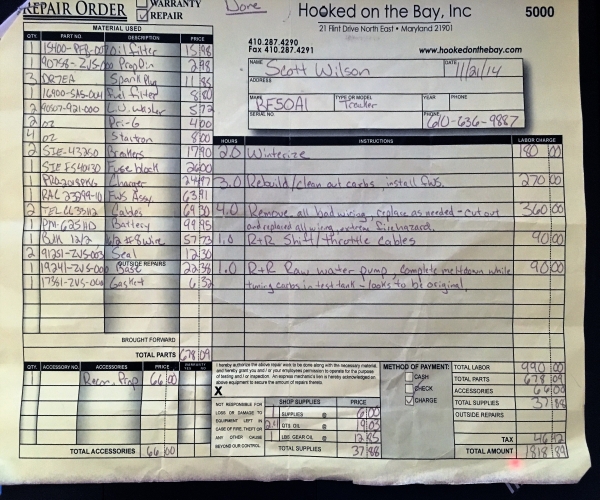 REPAIR ORDER
WARRANTY
REPAIR
Done
Hooked on the Bay, Inc
5000
21 Flint Drive North East • Maryland 21901
410.287.4290
Fax 410.287.4291
www.hookedonthebay.com
NAME Scott Wilson DATE 11/21/14
ADDRESS
MAKE BF50A1 TYPE OR MODEL Tracker YEAR PHONE
SERIAL NO. PHONE 610-636-9887
MATERIAL USED
QTY. PART NO. DESCRIPTION PRICE
1 15400-PFB-007 oil filter 15 98
1 90758-ZV5-000 Prop Pin 2 98
3 DR7EA Spark Plug 11 85
1 16900-SA5-004 fuel filter 8 80
2 90507-921-000 L.U. Washer 5 72
2 oz Pri-G 4 00
4 oz Startron 8 00
2 SIE-43250 Breakers 17 90
1 SIE FS40430 Fuse block 26 00
1 Charger 24 97
1 RAC 23299-10 FWS Assy. 63 91
2 TEL CC63312 Cables 69 30
1 PM-625110 Battery 99 95
1 Bulk 12/2 6/2 #8 wire 57 73
2 91251-ZV5-003 Seal 12 30
OUTSIDE REPAIRS
1 19241-ZV5-000 Base 22 38
1 17351-ZV5-000 Gasket 6 32
BROUGHT FORWARD
TOTAL PARTS 678 09
HOURS INSTRUCTIONS LABOR CHARGE
2.0 Winterize 180 00
3.0 Rebuild/clean out carbs, install FWS. 270 00
4.0 Remove all bad wiring, replace as needed - cut out 360 00
and replaced all wiring, extreme fire hazard.
1.0 R+R Shift/throttle cables 90 00
1.0 R+R Raw water pump, complete meltdown while 90 00
tuning carbs in test tank - looks to be original.
QTY. ACCESSORY NO. ACCESSORIES PRICE WARRANTY YES NO
Recon. Prop 66 00
TOTAL ACCESSORIES 66 00
I hereby authorize the above repair work to be done along with the necessary material,
and hereby grant you and / or your employees permission to operate for the purpose
of testing and / or inspection. An express mechanic's lien is hereby acknowledged on
above equipment to secure the amount of repairs thereto.
X
NOT RESPONSIBLE FOR
LOSS OR DAMAGE TO
EQUIPMENT LEFT IN
CASE OF FIRE, THEFT OR
ANY OTHER CAUSE
BEYOND OUR CONTROL.
SHOP SUPPLIES PRICE
1 SUPPLIES @ 6 00
QTS. OIL @ 19 03
1 LBS. GEAR OIL @ 12 85
TOTAL SUPPLIES 37 88
METHOD OF PAYMENT:
CASH
CHECK
CHARGE
TOTAL LABOR 990 00
TOTAL PARTS 678 09
ACCESSORIES 66 00
TOTAL SUPPLIES 37 88
OUTSIDE REPAIRS
TAX 46 92
TOTAL AMOUNT 1818 89